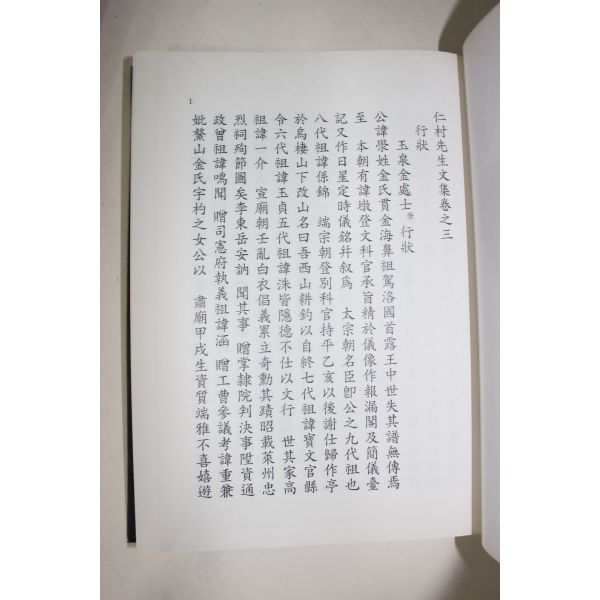 仁村先生文集卷之三
行狀
玉泉金處士 行狀
公諱學姓金氏貫金海鼻祖駕洛國首露王中世失其譜無傳焉
至 本朝有諱墩登文科官承旨精於儀像作報漏閣及簡儀臺
記又作日星定時儀銘幷叙爲 太宗朝名臣卽公之九代祖也
八代祖諱係錦 端宗朝登別科官持平乙亥以後謝仕歸作亭
於烏棲山下改山名曰吾西山耕釣以自終七代祖諱寶文官縣
令六代祖諱玉貞五代祖諱洙皆隱德不仕以文行 世其家高
祖諱一介 宣廟朝壬亂白衣倡義累立奇勳其蹟昭載萊州忠
烈祠殉節圖矣李東岳安訥 聞其事 贈掌隷院判決事陞資通
政曾祖諱鳴聞 贈司憲府執義祖諱涵 贈工曹參議考諱重兼
妣鰲山金氏字杓之女公以 肅廟甲戌生資質端雅不喜嬉遊
1